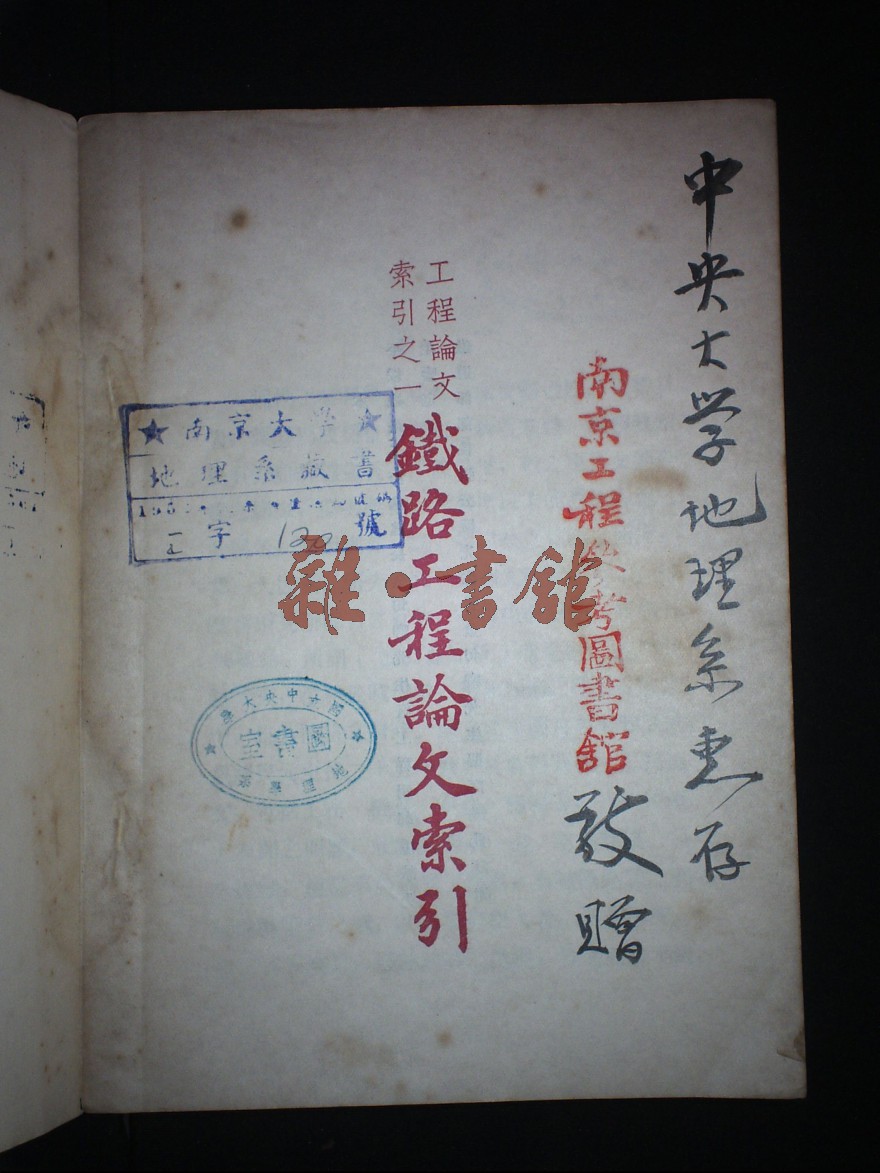 中央大学地理系惠存
南京工程參考圖書館
敬贈
工程論文
索引之一
鐵路工程論文索引
★南京大學★
地理系藏書
字 120 號
國立中央大學
圖書室
地理學系
雜·書館